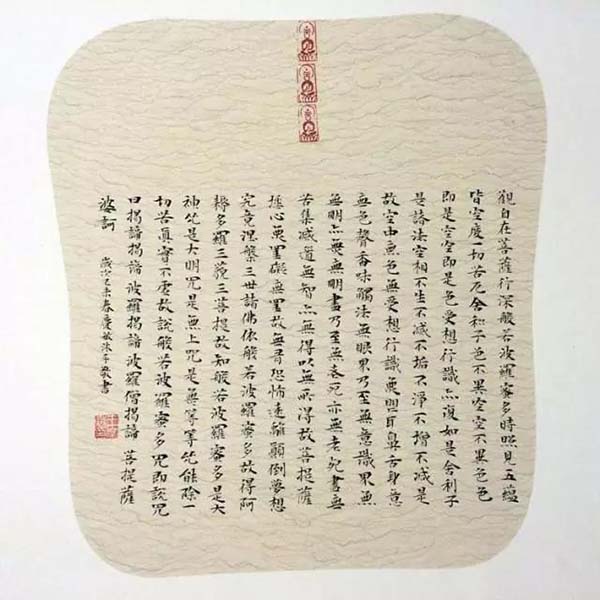 觀自在菩薩行深般若波羅蜜多時照見五蘊
皆空度一切苦厄舍利子色不異空空不異色色
即是空空即是色受想行識亦復如是舍利子
是諸法空相不生不滅不垢不淨不增不減是
故空中無色無受想行識無眼耳鼻舌身意
無色聲香味觸法無眼界乃至無意識界無
無明亦無無明盡乃至無老死亦無老死盡無
苦集滅道無智亦無得以無所得故菩提薩
捶心無罣礙無罣故無有恐怖遠離顛倒夢想
究竟涅槃三世諸佛依般若波羅蜜多故得阿
耨多羅三藐三菩提故知般若波羅蜜多是大
神咒是大明咒是無上咒是無等等咒能除一
切苦真實不虛故說般若波羅蜜多咒即說咒
曰揭諦揭諦波羅揭諦波羅僧揭諦 菩提薩
婆訶
歲次乙未春慶敏沐手敬書